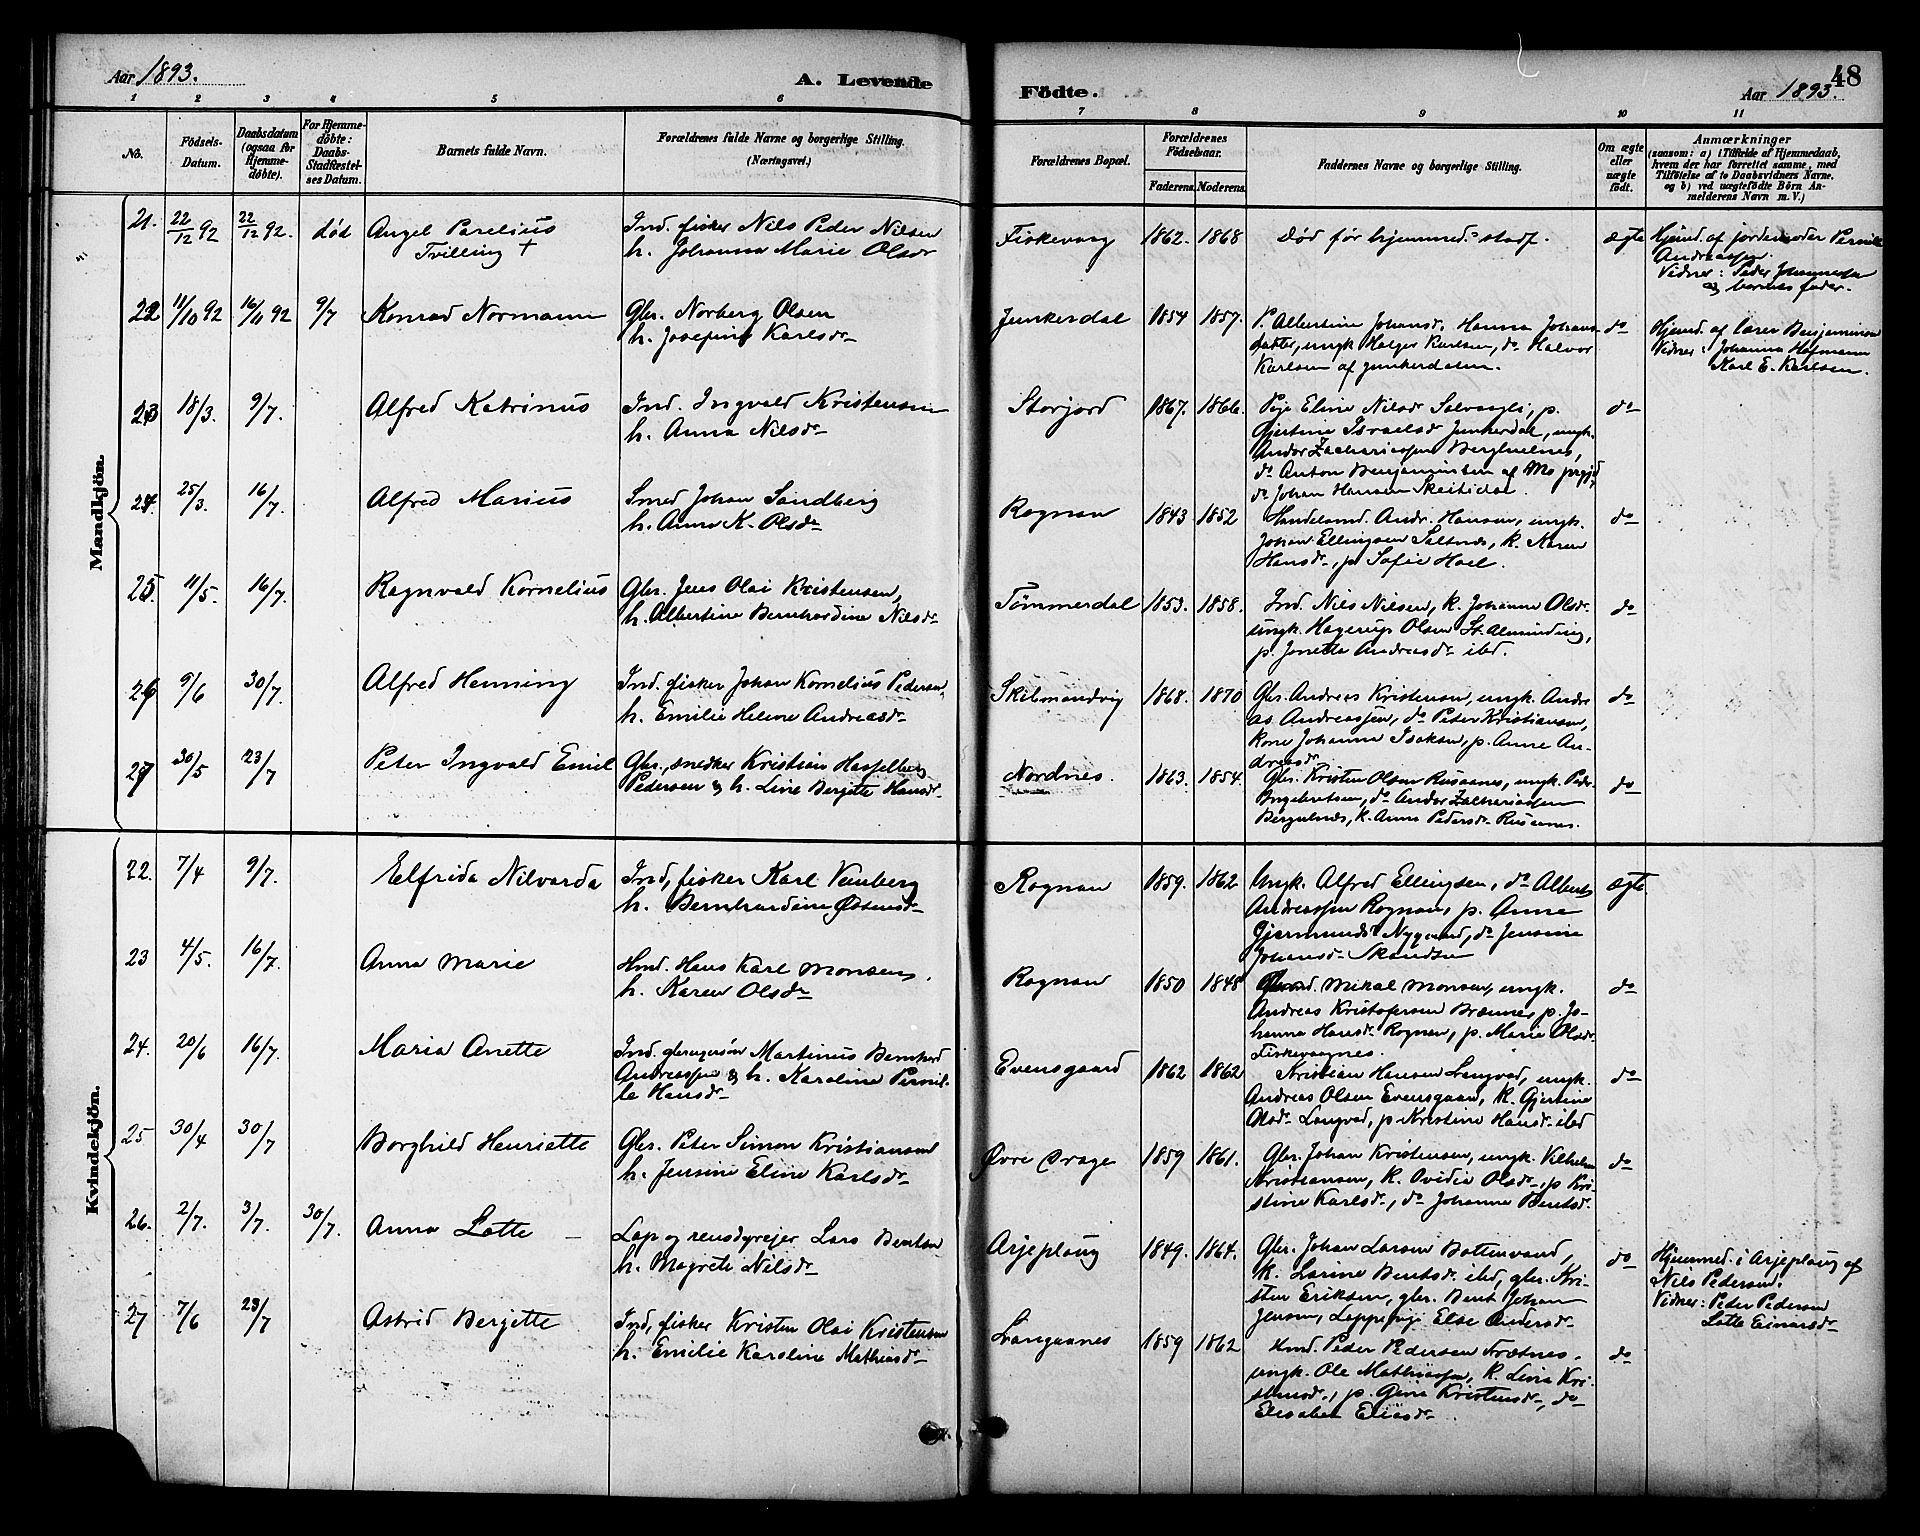 Aar 1893.
A. Levende
Födte.
48
Aar 1893.
1 2 3 4 5 6 7 8 9 10 11
No.
Födsels-Datum.
Daabsdatum (ogsaa for Hjemmedöbte).
For Hjemmedöbte: Daabs-Stadfæstelses Datum.
Barnets fulde Navn.
Forældrenes fulde Navne og borgerlige Stilling.
(Næringsvei.)
Forældrenes Bopæl.
Forældrenes Födselsaar.
Faderens. Moderens.
Faddernes Navne og borgerlige Stilling.
Om ægte eller uægte födt.
Anmærkninger
(saasom: a) i Tilfælde af Hjemmedaab,
hvem der har forrettet samme, med
Tilföielse af to Daabsvidners Navne.
og b) ved uægtefödte Börn Anmelderens Navn m. V.)
Mandkjön.
21. 22/12 92 22/12 92. død Angel Parelius Ind. fisker Nils Peder Nilsen
Tvilling + h. Johanna Marie Olsdr
Fiskevaag 1862. 1868 Død før hjemmed. stadf. ægte Hjemd. af jordemoder Pernille
Andreassen.
Vidner: Peder Johannesen
og barnets fader.
22 11/10 92 16/11 92 9/7 Konrad Normann Gbr. Norberg Olsen
h. Josefine Karlsdr
Junkerdal 1854 1857. P. Albertine Johansd. Hanna Johans-
datter, ungk Holger Karlsen, do Halvor
Karlsen af Junkerdalen.
do Hjemd. af lærer Benjaminsen
Vidner: Johanna Hofmann
Karl E. Karlsen.
23 18/3. 9/7. Alfred Katrinus Ind. Ingvald Kristensen
h. Anna Nilsdr
Storjord 1867. 1866. Pige Eline Nilsd. Solvaagli, p.
Gjertine Israelsd Junkerdal, ungk.
Andor Zachariassen Berghulnes,
do Anton Benjaminsen af Mo prgjd,
do Johan Hansen Skeitidal.
do
24. 25/3 16/7. Alfred Marius Smed Johan Sandberg
h. Anna K. Olsdr
Rognan 1843 1852 Handelsmd. Andr. Hansen, ungk.
Johan Ellingsen Saltnes, k. Karen
Hansd., p. Sofie Hoel.
do
25. 11/5. 16/7. Ragnvald Kornelius Gbr. Jens Olai Kristensen,
h. Albertine Bernhardine Nilsdr
Tømmerdal 1853. 1858. Ind. Nils Nilsen, k. Johanna Olsdr
ungk. Hagerup Olsen St. Alminding,
p. Jonetta Andreasdr ibd.
do
26 9/6 30/7. Alfred Henning Ind. fisker Johan Kornelius Pedersen,
h. Emilie Helene Andreasdr
Skibmandvig 1868. 1870 Gbr. Andreas Kristensen, ungk. Andre
as Andreassen, do Peter Kristiansen,
kone Johanna Isaksen, p. Anne An-
dreasdr
do
27 30/5 23/7 Peter Ingvald Emil Gbr., snedker Kristian Hasselberg
Pedersen & h. Line Bergitte Hansdr
Nordnes. 1863. 1854. Gbr. Kristen Olsen Rusaanes, ungk. Peder
Ingebretsen, do Andor Zachariassen
Bergulnes, k. Anna Pedersdr Rusaanes.
do
Kvindekjön.
22. 7/4 9/7. Elfrida Nilvarda Ind, fisker Karl Venberg
h. Bernhardine Østensdr
Rognan 1859. 1862 Ungk. Alfred Ellingsen, do Albert
Andreassen Rognan, p. Anne
Gjermundsd Nygaard, do Jensine
Johansd.
ægte
23 4/5. 16/7. Anna Marie Hmd. Hans Karl Monsen,
h. Karen Olsdr
Rognan 1850 1848 Mikal Monsen, ungk.
Andreas Kristofersen Brænnes, p. Jo-
hanna Hansdr Rognan, p. Marie Olsdr
Fiskevaagnes.
do
24. 20/6 16/7. Maria Anette Ind. Martinus Bernhard
Andreassen & h. Karoline Pernil-
le Hansdr
Evensgaard 1862 1862 Kristian Hansen Langvad, ungk.
Andreas Olsen Evensgaard, k. Gjertine
Olsdr Langvad, p. Kristine Hansdr ibd
do
25 30/4 30/7 Borghild Henriette Gbr. Peter Simon Kristiansen
h. Jensine Eline Karlsdr
Øvre Drage 1859 1861. Gbr. Johan Kristensen, ungk. Vilhelm
Kristiansen, k. Ovidie Olsdr, p Kri-
stine Karlsd., do Johanna Bentsd.
do
26. 2/7. 3/7. 30/7. Anna Lotte Lap og rensdyrejer Lars Bentsen
h. Magrete Nilsdr
Arjeploug 1849. 1864. Gbr. Johan Larsen Bottenvand,
k. Larine Bentsdr ibd, gbr. Kri-
sten Eriksen, gbr. Bent Johan
Jensen, Lappepige Else Andersdr
do Hjemmed. i Arjeploug af
Nils Pedersen.
Vidner: Peter Pedersen
Lotte Einarsdr
27 7/6 23/7 Astrid Bergitte Ind, fisker Kristen Olai Kristensen
h. Emilie Karoline Mathiasdr
Langaanes 1859 1862 Hmd. Peder Pedersen Frætnes.
ungk. Ole Mathiassen, k. Lina Kri-
stensd., p. Gina Kristensdr, do
Elisabet Eliasdr
do